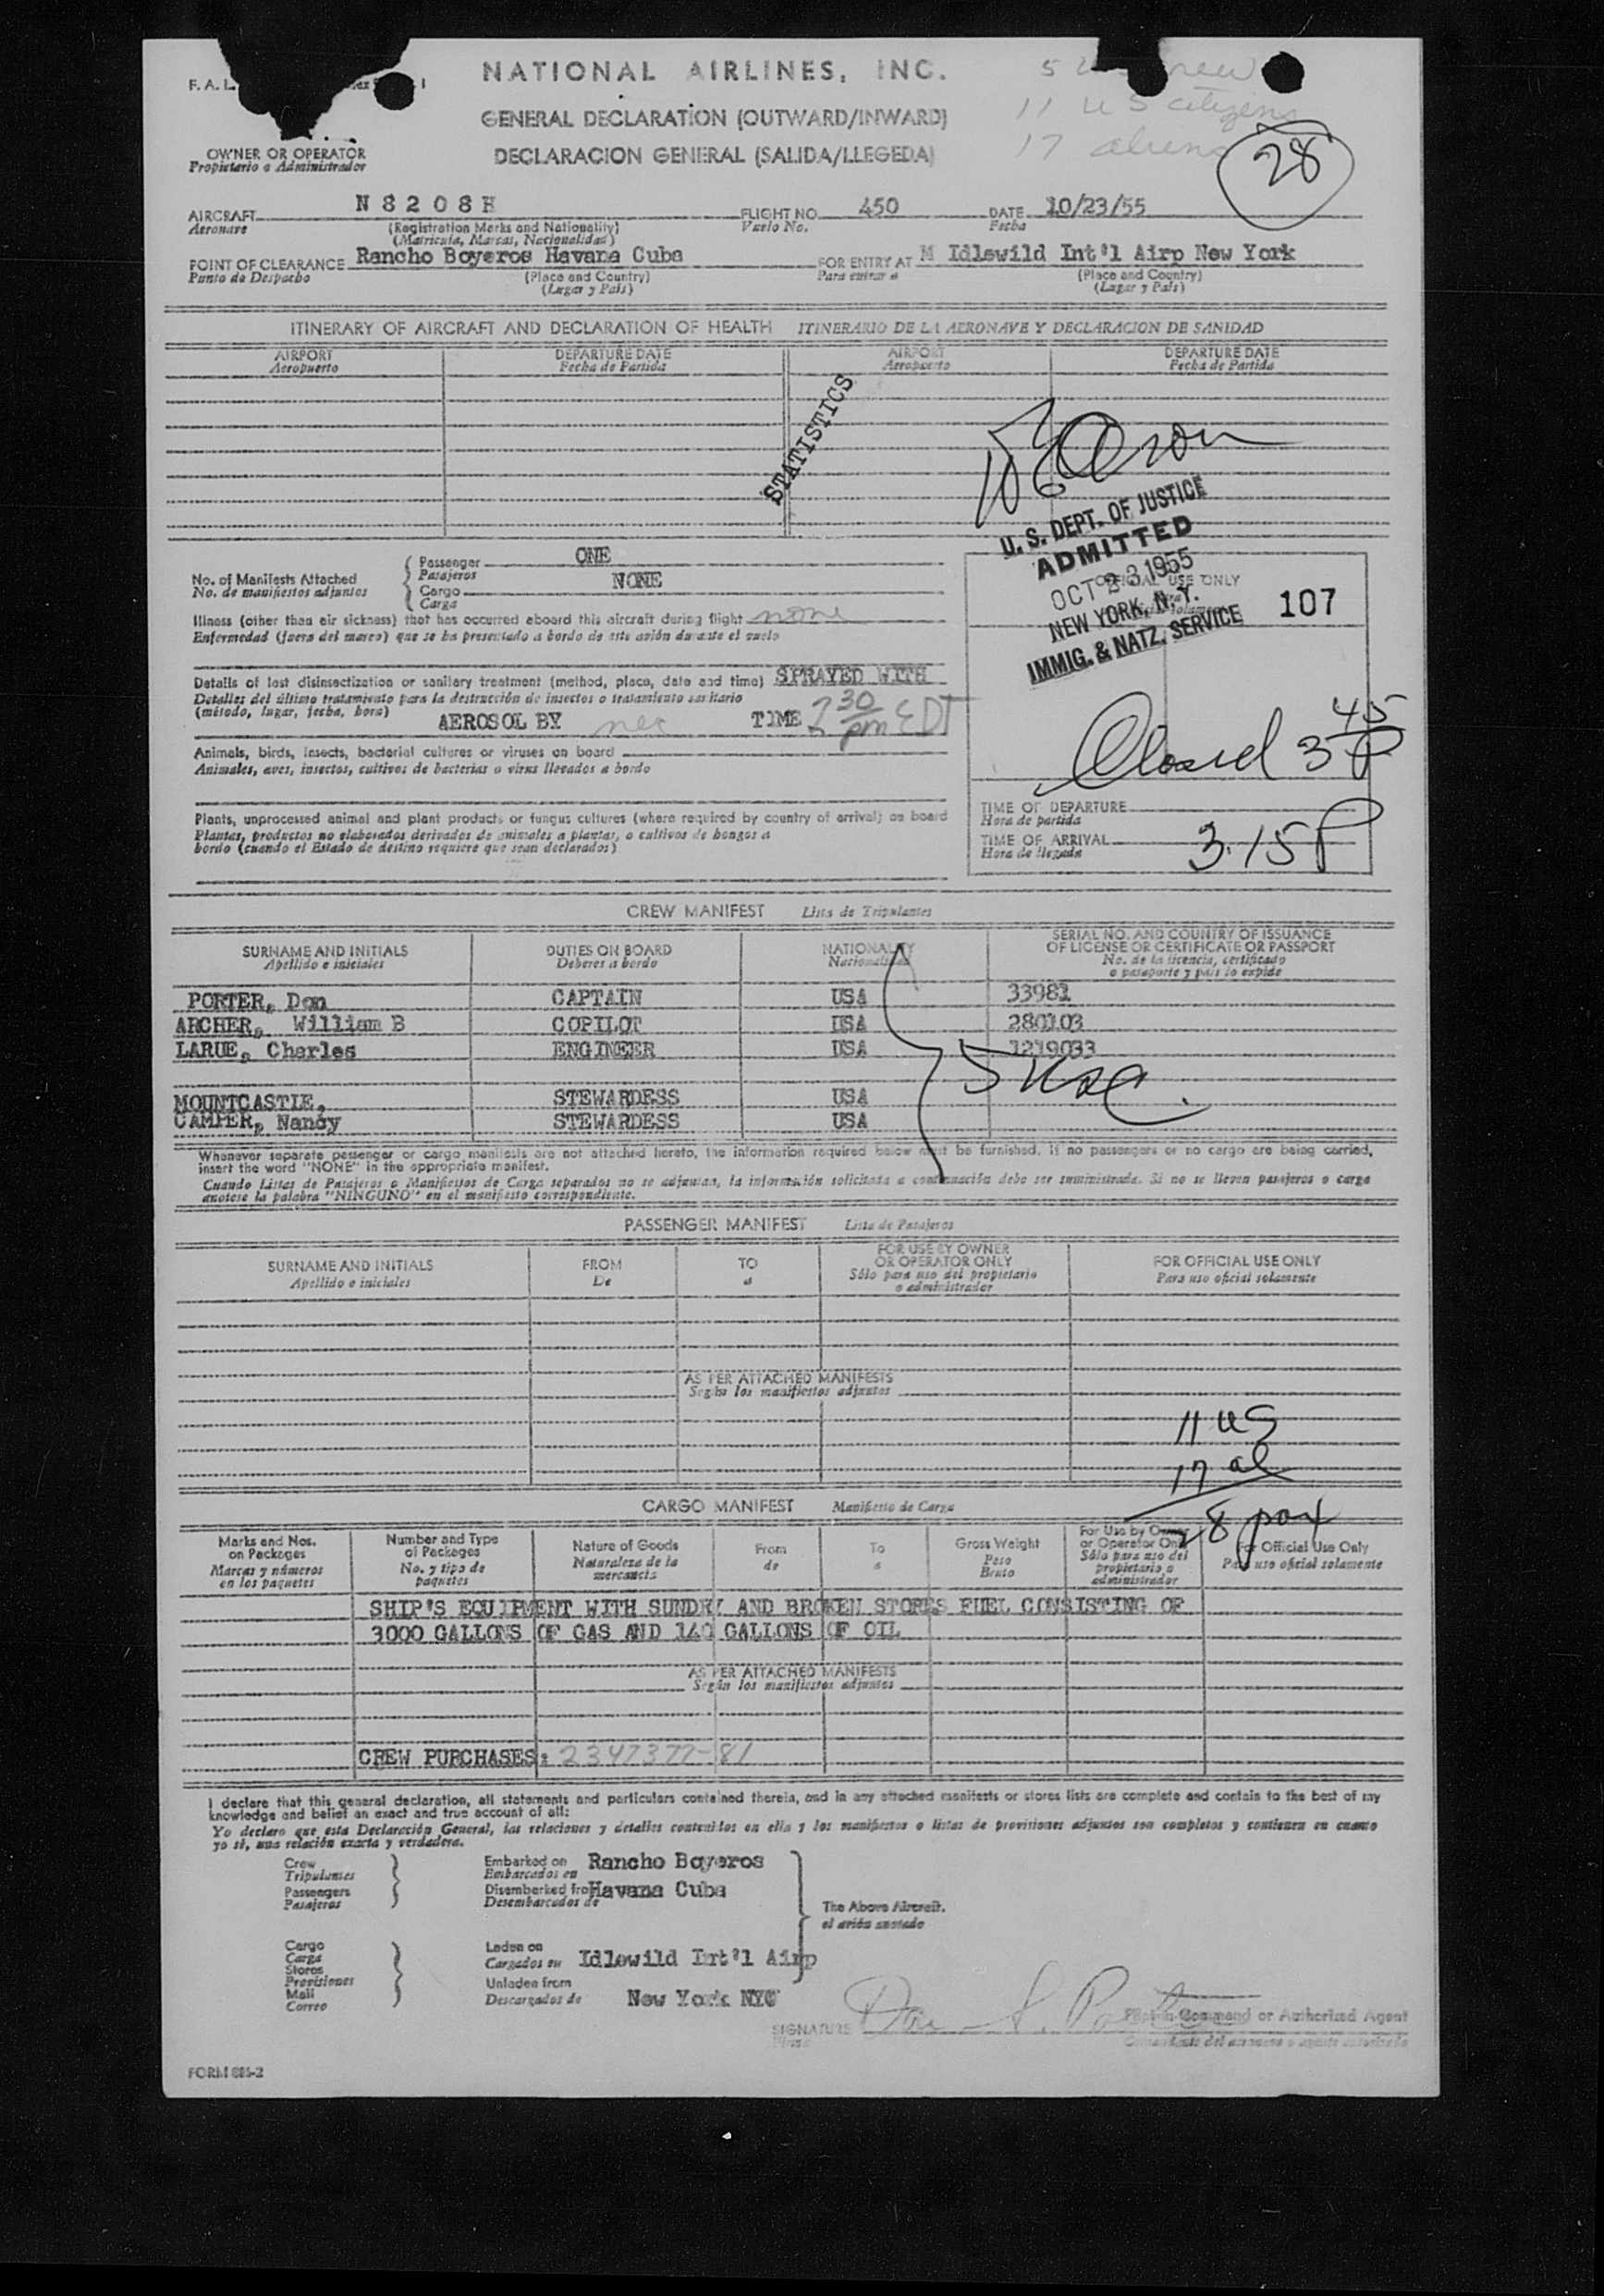 F. A. L.
NATIONAL AIRLINES, INC.
11 US citizens
GENERAL DECLARATION (OUTWARD/INWARD)
17 aliens
DECLARACION GENERAL (SALIDA/LLEGEDA)
28
OWNER OR OPERATOR
Propietario o Administrador
AIRCRAFT N 8 2 0 8 H FLIGHT NO. 450 DATE 10/23/55
Aeronave (Registration Marks and Nationality) Vuelo No. Fecha
(Matricula, Marcas, Nacionalidad)
POINT OF CLEARANCE Rancho Boyeros Havana Cuba FOR ENTRY AT M Idlewild Int'l Airp New York
Punto de Despacho (Place and Country) Para entrar a (Place and Country)
(Lugar y Pais) (Lugar y Pais)
ITINERARY OF AIRCRAFT AND DECLARATION OF HEALTH ITINERARIO DE LA AERONAVE Y DECLARACION DE SANIDAD
AIRPORT DEPARTURE DATE AIRPORT DEPARTURE DATE
Aeropuerto Fecha de Partida Aeropuerto Fecha de Partida
STATISTICS
U. S. DEPT. OF JUSTICE
ADMITTED
OCT 23 1955
NEW YORK, N. Y.
IMMIG. & NATZ. SERVICE
OFFICIAL USE ONLY
107
No. of Manifests Attached Passenger ONE
No. de manifiestos adjuntos Pasajeros
Cargo NONE
Carga
Illness (other than air sickness) that has occurred aboard this aircraft during flight none
Enfermedad (fuera del mareo) que se ha presentado a bordo de este avión durante el vuelo
Details of last disinsectization or sanitary treatment (method, place, date and time) SPRAYED WITH
Detalles del último tratamiento para la destrucción de insectos o tratamiento sanitario
(método, lugar, fecha, hora) AEROSOL BY TIME 2 30 pm EDT
Closed 3 45 P
Animals, birds, insects, bacterial cultures or viruses on board
Animales, aves, insectos, cultivos de bacterias o virus llevados a bordo
Plants, unprocessed animal and plant products or fungus cultures (where required by country of arrival) on board
Plantas, productos no elaborados derivados de animales a plantas, o cultivos de hongos a
bordo (cuando el Estado de destino requiere que sean declarados)
TIME OF DEPARTURE
Hora de partida
TIME OF ARRIVAL 3.15 P
Hora de llegada
CREW MANIFEST Lista de Tripulantes
SURNAME AND INITIALS DUTIES ON BOARD NATIONALITY SERIAL NO. AND COUNTRY OF ISSUANCE
Apellido e iniciales Deberes a bordo Nacionalidad OF LICENSE OR CERTIFICATE OR PASSPORT
No. de la licencia, certificado
o pasaporte y pais lo expide
PORTER, Don CAPTAIN USA 33981
ARCHER, William B COPILOT USA 280103
LARUE, Charles ENGINEER USA 1219033
5 usc
MOUNTCASTLE, STEWARDESS USA
CAMPER, Nancy STEWARDESS USA
Whenever separate passenger or cargo manifests are not attached hereto, the information required below must be furnished. If no passengers or no cargo are being carried,
insert the word "NONE" in the appropriate manifest.
Cuando Listas de Pasajeros o Manifiestos de Carga separados no se adjuntan, la información solicitada a continuación debe ser suministrada. Si no se lleven pasajeros o carga
anotese la palabra "NINGUNO" en el manifiesto correspondiente.
PASSENGER MANIFEST Lista de Pasajeros
SURNAME AND INITIALS FROM TO FOR USE BY OWNER OR OPERATOR ONLY FOR OFFICIAL USE ONLY
Apellido e iniciales De a Sólo para uso del propietario o administrador Para uso oficial solamente
AS PER ATTACHED MANIFESTS
Según los manifiestos adjuntos
11 US
17 al
28 pax
CARGO MANIFEST Manifiesto de Carga
Marks and Nos. on Packages Number and Type of Packages Nature of Goods From To Gross Weight For Use by Owner or Operator Only For Official Use Only
Marcas y números en los paquetes No. y tipo de paquetes Naturaleza de la mercancia de a Peso Bruto Sólo para uso del propietario o administrador Para uso oficial solamente
SHIP'S EQUIPMENT WITH SUNDRY AND BROKEN STORES FUEL CONSISTING OF
3000 GALLONS OF GAS AND 140 GALLONS OF OIL
AS PER ATTACHED MANIFESTS
Según los manifiestos adjuntos
CREW PURCHASES: 2347377-81
I declare that this general declaration, all statements and particulars contained therein, and in any attached manifests or stores lists are complete and contain to the best of my
knowledge and belief an exact and true account of all:
Yo declaro que esta Declaración General, las relaciones y detalles contenidos en ella y los manifiestos o listas de provisiones adjuntos son completos y contienen en cuanto
yo sé, una relación exacta y verdadera.
Crew Embarked on Rancho Boyeros
Tripulantes Embarcados en
Passengers Disembarked fro Havana Cuba
Pasajeros Desembarcados de
The Above Aircraft.
el avión anotado
Cargo Laden on
Carga Cargados en Idlewild Int'l Airp
Stores
Provisiones Unladen from
Mail Descargados de New York NYC
Correo
SIGNATURE Don S. Porter Pilot-in-Command or Authorized Agent
Firma Comandante del aeronave o agente autorizado
FORM 886-2